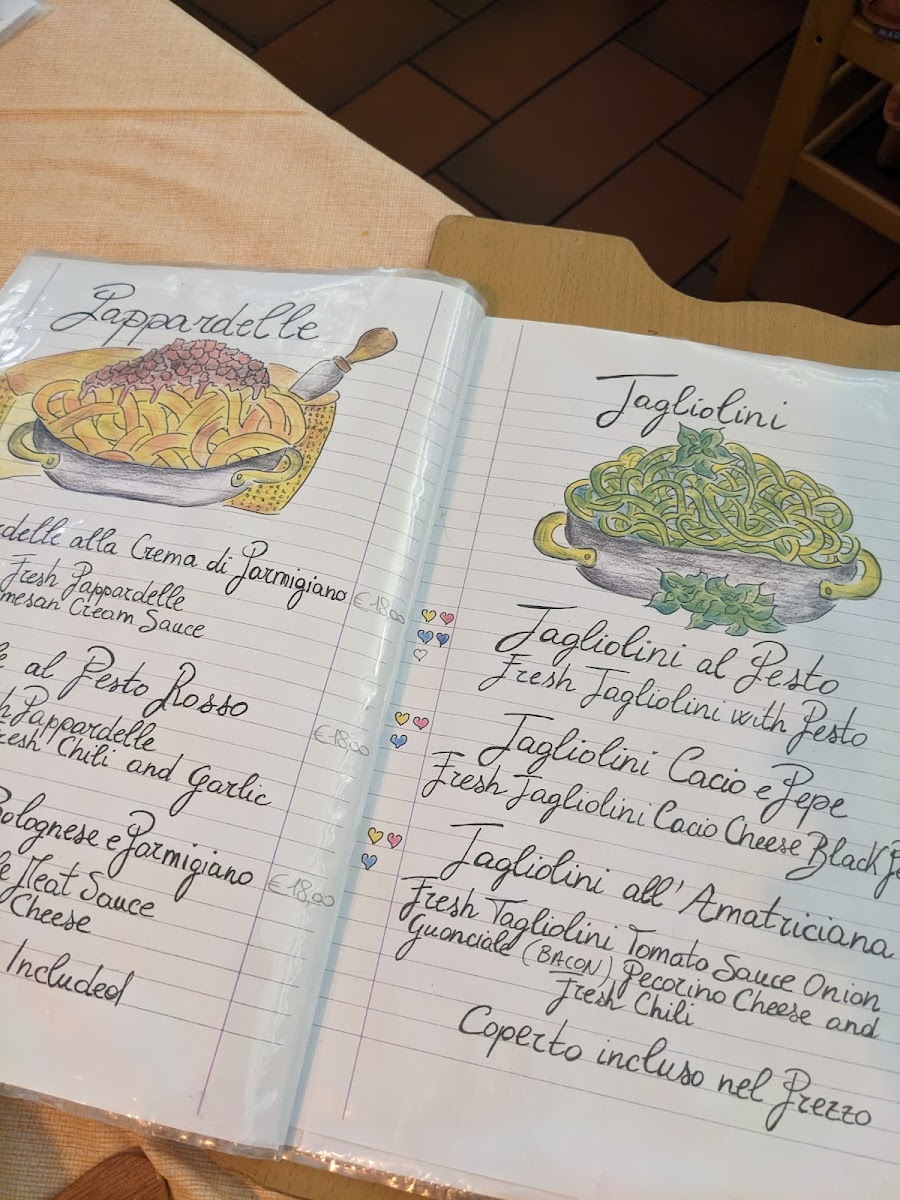 Pappardelle
alla Crema di Parmigiano €18,00
Fresh Pappardelle
Cream Sauce
al Pesto Rosso
Pappardelle €18,00
Chili and Garlic
Bolognese e Parmigiano €18,00
Meat Sauce
Cheese
Included
Tagliolini
Tagliolini al Pesto
Fresh Tagliolini with Pesto
Tagliolini Cacio e Pepe
Fresh Tagliolini Cacio Cheese Black
Tagliolini all' Amatriciana
Fresh Tagliolini Tomato Sauce Onion
Guonciale (BACON) Pecorino Cheese and
Fresh Chili
Coperto incluso nel Prezzo